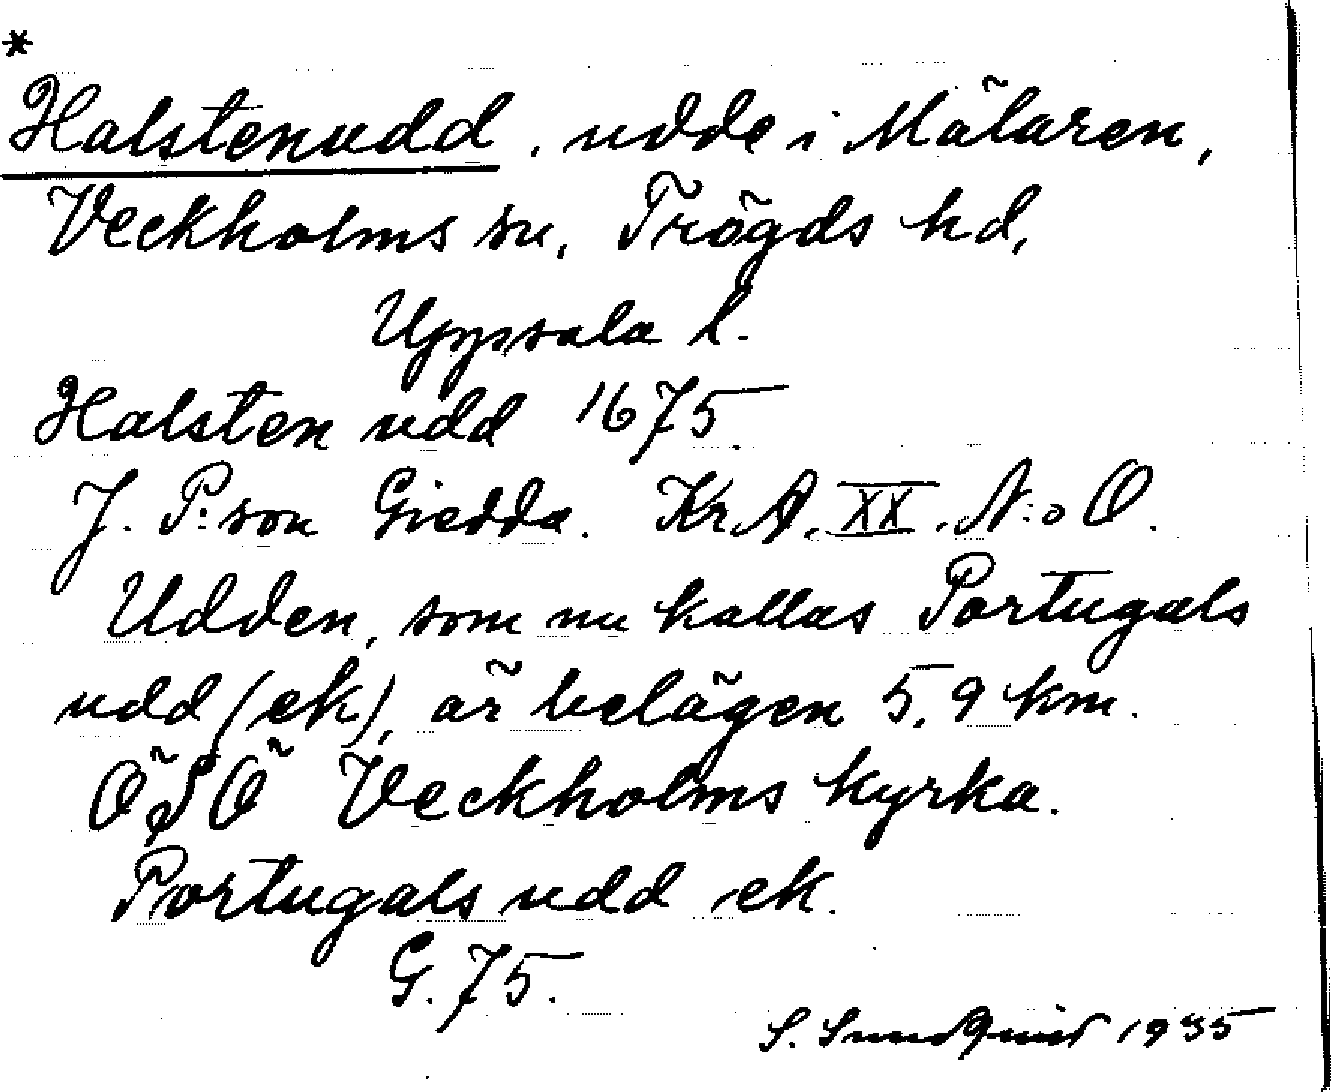 *
Halstenudd, udde i Mälaren,
Veckholms sn, Trögds hd,
Uppsala l.
Halsten udd 1675.
J. P:son Giedda. Kr A. XX. N:o O.
Udden, som nu kallas Portugals
udd (ek), är belägen 5,9 km.
ÖSÖ Veckholms kyrka.
Portugals udd ek.
G. 75.
S. Sundquist 1935